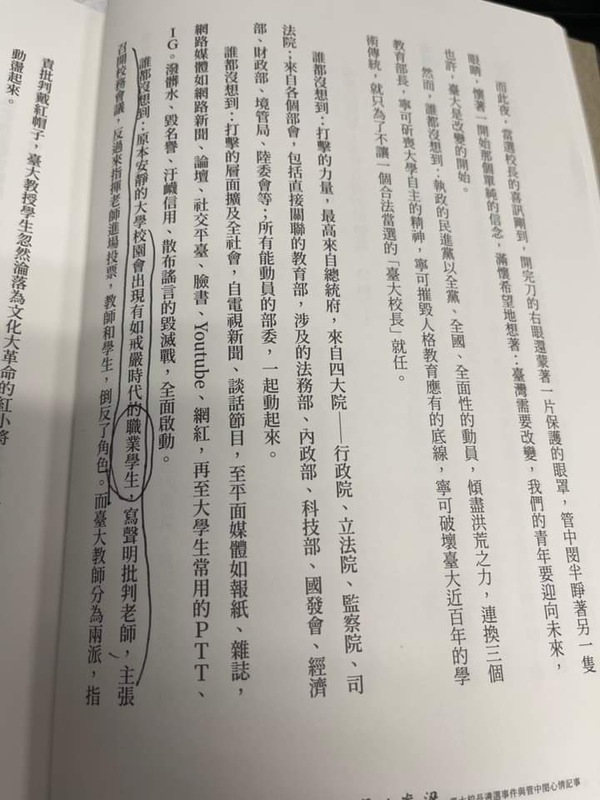 而此夜，當選校長的喜訊剛到，開完刀的右眼還蒙著一片保護的眼罩，管中閔半睜著另一隻
眼睛，懷著一開始那個單純的信念，滿懷希望地想著：臺灣需要改變，我們的青年要迎向未來，
也許，臺大是改變的開始。
然而，誰都沒想到：執政的民進黨以全黨、全國、全面性的動員，傾盡洪荒之力，連換三個
教育部長，寧可斫喪大學自主的精神，寧可摧毀人格教育應有的底線，寧可破壞臺大近百年的學
術傳統，就只為了不讓一個合法當選的「臺大校長」就任。
誰都沒想到：打擊的力量，最高來自總統府，來自四大院——行政院、立法院、監察院、司
法院；來自各個部會，包括直接關聯的教育部，涉及的法務部、內政部、科技部、國發會、經濟
部、財政部、境管局、陸委會等；所有能動員的部委，一起動起來。
誰都沒想到：打擊的層面擴及全社會，自電視新聞、談話節目，至平面媒體如報紙、雜誌，
網路媒體如網路新聞、論壇、社交平臺、臉書、Youtube、網紅，再至大學生常用的PTT、
IG。潑髒水、毀名譽、汙衊信用、散布謠言的毀滅戰，全面啟動。
誰都沒想到：原本安靜的大學校園會出現有如戒嚴時代的職業學生，寫聲明批判老師，主張
召開校務會議，反過來指揮老師進場投票，教師和學生，倒反了角色。而臺大教師分為兩派，指
責批判戴紅帽子，臺大教授學生忽然淪落為文化大革命的紅小將
動盪起來。
大校長遴選事件與管中閔心情記事